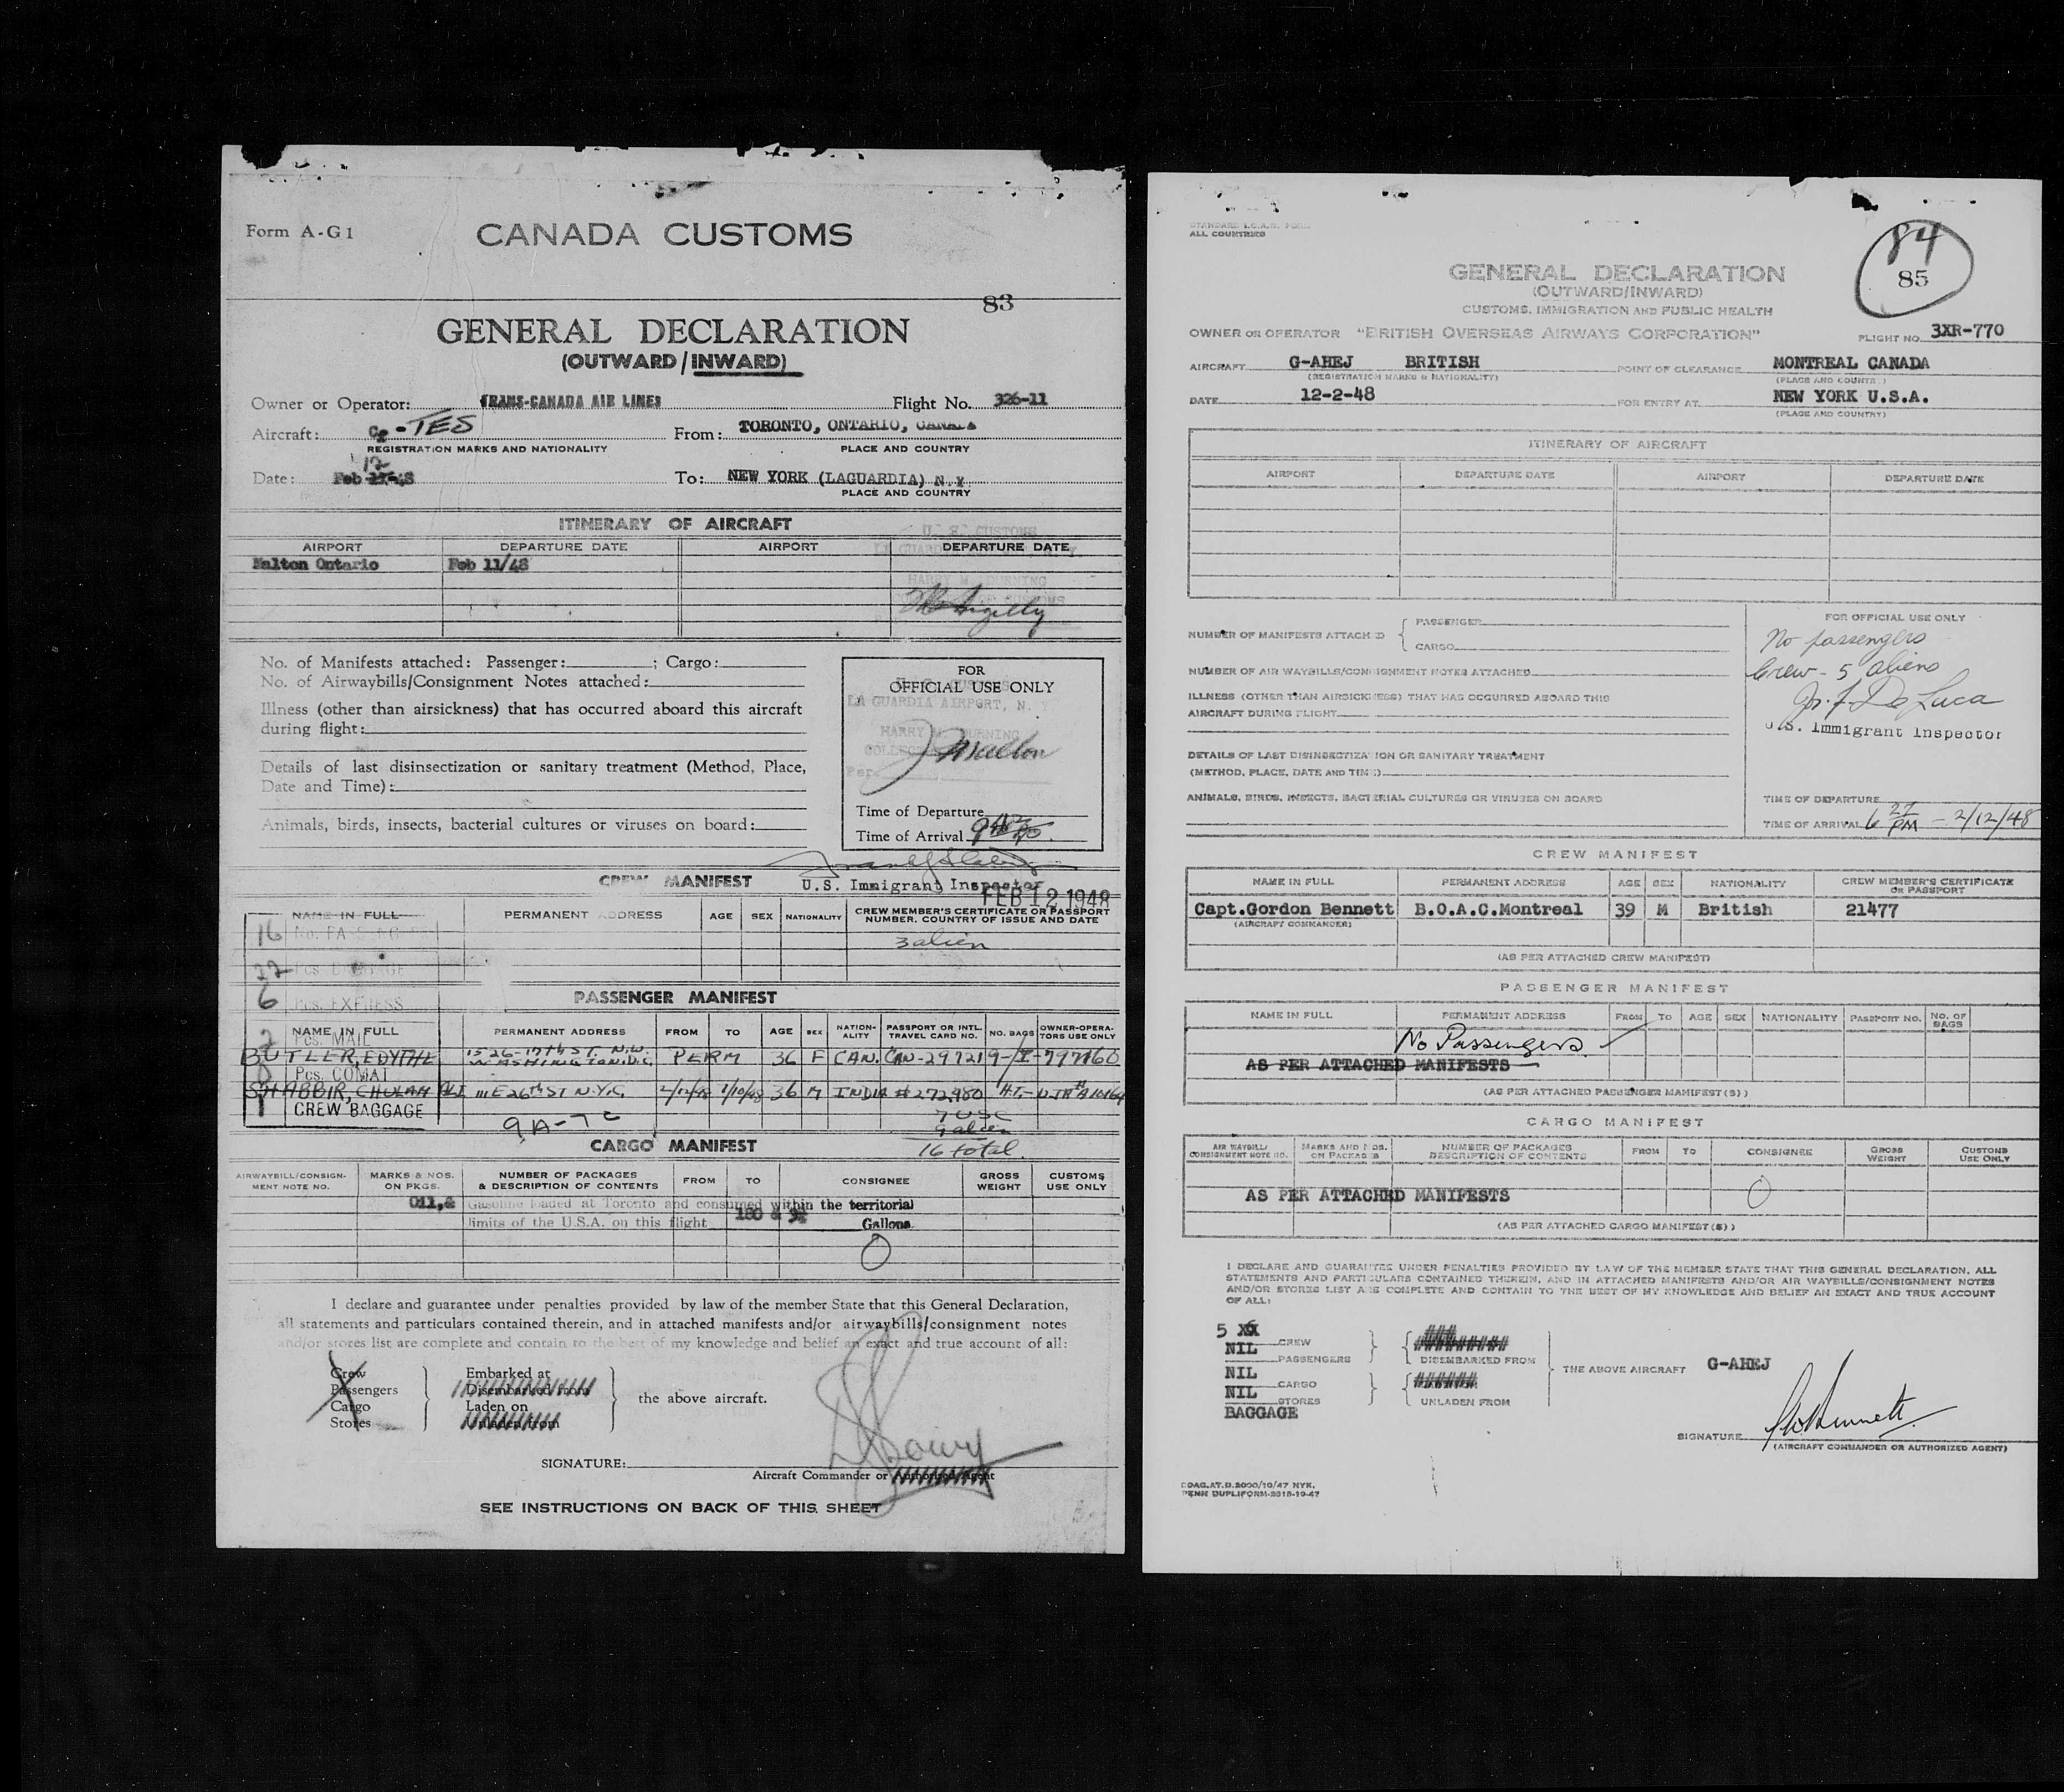 Form A-G1
CANADA CUSTOMS
83
GENERAL DECLARATION
(OUTWARD/INWARD)
Owner or Operator: TRANS-CANADA AIR LINES Flight No. 326-11
Aircraft: CF-TES From: TORONTO, ONTARIO, CANADA
REGISTRATION MARKS AND NATIONALITY PLACE AND COUNTRY
12
Date: Feb 11-48 To: NEW YORK (LAGUARDIA) N.Y.
PLACE AND COUNTRY
ITINERARY OF AIRCRAFT
U. S. CUSTOMS
AIRPORT DEPARTURE DATE AIRPORT DEPARTURE DATE
Malton Ontario Feb 11/48
HARRY M. DURNING
No. of Manifests attached: Passenger: ; Cargo:
No. of Airwaybills/Consignment Notes attached:
Illness (other than airsickness) that has occurred aboard this aircraft
during flight:
Details of last disinsectization or sanitary treatment (Method, Place,
Date and Time):
Animals, birds, insects, bacterial cultures or viruses on board:
FOR
OFFICIAL USE ONLY
LA GUARDIA AIRPORT, N. Y.
HARRY M. DURNING
Per.
Time of Departure
Time of Arrival
CREW MANIFEST
U.S. Immigrant Inspector
FEB 12 1948
NAME IN FULL PERMANENT ADDRESS AGE SEX NATIONALITY CREW MEMBER'S CERTIFICATE OR PASSPORT
NUMBER, COUNTRY OF ISSUE AND DATE
16 No. PASSENGERS
3 alien
22 Pcs. BAGGAGE
6 Pcs. EXPRESS
PASSENGER MANIFEST
NAME IN FULL PERMANENT ADDRESS FROM TO AGE SEX NATION-ALITY PASSPORT OR INTL. TRAVEL CARD NO. NO. BAGS OWNER-OPERA-TORS USE ONLY
2 Pcs. MAIL
BUTLER, EDYTHE 1526-17th ST. N.W. WASHINGTON D.C. PERM 36 F CAN. CAN-29721
0 Pcs. COMAT
SHABBIR, GHULAM ALI 111 E 26th ST N.Y.C. 36 M INDIA #272980
1 CREW BAGGAGE
9A-7C
7 USC
9 alien
16 total
CARGO MANIFEST
AIRWAYBILL/CONSIGN-MENT NOTE NO. MARKS & NOS. ON PKGS. NUMBER OF PACKAGES & DESCRIPTION OF CONTENTS FROM TO CONSIGNEE GROSS WEIGHT CUSTOMS USE ONLY
Oil,& Gasoline loaded at Toronto and consumed within the territorial
limits of the U.S.A. on this flight Gallons
0
I declare and guarantee under penalties provided by law of the member State that this General Declaration,
all statements and particulars contained therein, and in attached manifests and/or airwaybills/consignment notes
and/or stores list are complete and contain to the best of my knowledge and belief an exact and true account of all:
Crew
Passengers
Cargo
Stores
Embarked at
Disembarked from
Laden on
Unladen from
the above aircraft.
SIGNATURE:
Aircraft Commander or Authorized Agent
SEE INSTRUCTIONS ON BACK OF THIS SHEET
STANDARD I.C.A.O. FORM
ALL COUNTRIES
84
85
GENERAL DECLARATION
(OUTWARD/INWARD)
CUSTOMS, IMMIGRATION AND PUBLIC HEALTH
OWNER OR OPERATOR "BRITISH OVERSEAS AIRWAYS CORPORATION" FLIGHT NO. 3XR-770
AIRCRAFT G-AHEJ BRITISH POINT OF CLEARANCE MONTREAL CANADA
(REGISTRATION MARKS & NATIONALITY) (PLACE AND COUNTRY)
DATE 12-2-48 FOR ENTRY AT NEW YORK U.S.A.
(PLACE AND COUNTRY)
ITINERARY OF AIRCRAFT
AIRPORT DEPARTURE DATE AIRPORT DEPARTURE DATE
NUMBER OF MANIFESTS ATTACHED PASSENGER
CARGO
NUMBER OF AIR WAYBILLS/CONSIGNMENT NOTES ATTACHED
ILLNESS (OTHER THAN AIRSICKNESS) THAT HAS OCCURRED ABOARD THIS
AIRCRAFT DURING FLIGHT
DETAILS OF LAST DISINSECTIZATION OR SANITARY TREATMENT
(METHOD, PLACE, DATE AND TIME)
ANIMALS, BIRDS, INSECTS, BACTERIAL CULTURES OR VIRUSES ON BOARD
FOR OFFICIAL USE ONLY
No passengers
Crew - 5 aliens
Jos. F. De Luca
U.S. Immigrant Inspector
TIME OF DEPARTURE
TIME OF ARRIVAL 6 27 PM - 2/12/48
CREW MANIFEST
NAME IN FULL PERMANENT ADDRESS AGE SEX NATIONALITY CREW MEMBER'S CERTIFICATE OR PASSPORT
Capt.Gordon Bennett B.O.A.C.Montreal 39 M British 21477
(AIRCRAFT COMMANDER)
(AS PER ATTACHED CREW MANIFEST)
PASSENGER MANIFEST
NAME IN FULL PERMANENT ADDRESS FROM TO AGE SEX NATIONALITY PASSPORT NO. NO. OF BAGS
No Passengers
AS PER ATTACHED MANIFESTS
(AS PER ATTACHED PASSENGER MANIFEST(S))
CARGO MANIFEST
AIR WAYBILL/ CONSIGNMENT NOTE NO. MARKS AND NOS. ON PACKAGES NUMBER OF PACKAGES DESCRIPTION OF CONTENTS FROM TO CONSIGNEE GROSS WEIGHT CUSTOMS USE ONLY
AS PER ATTACHED MANIFESTS 0
(AS PER ATTACHED CARGO MANIFEST(S))
I DECLARE AND GUARANTEE UNDER PENALTIES PROVIDED BY LAW OF THE MEMBER STATE THAT THIS GENERAL DECLARATION, ALL
STATEMENTS AND PARTICULARS CONTAINED THEREIN, AND IN ATTACHED MANIFESTS AND/OR AIR WAYBILLS/CONSIGNMENT NOTES
AND/OR STORES LIST ARE COMPLETE AND CONTAIN TO THE BEST OF MY KNOWLEDGE AND BELIEF AN EXACT AND TRUE ACCOUNT
OF ALL:
5 XX CREW
NIL PASSENGERS DISEMBARKED FROM
THE ABOVE AIRCRAFT G-AHEJ
NIL CARGO
NIL STORES UNLADEN FROM
BAGGAGE
SIGNATURE
(AIRCRAFT COMMANDER OR AUTHORIZED AGENT)